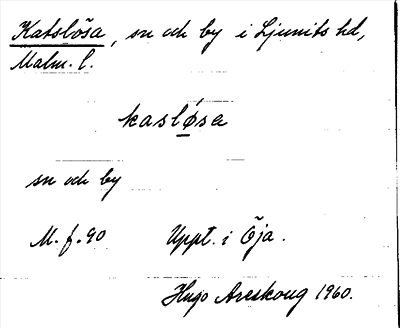 Katslösa, sn och by i Ljunits hd,
Malm. l.
kasløsa
sn och by
M. f. 90 Uppt. i Öja.
Hugo Areskoug 1960.